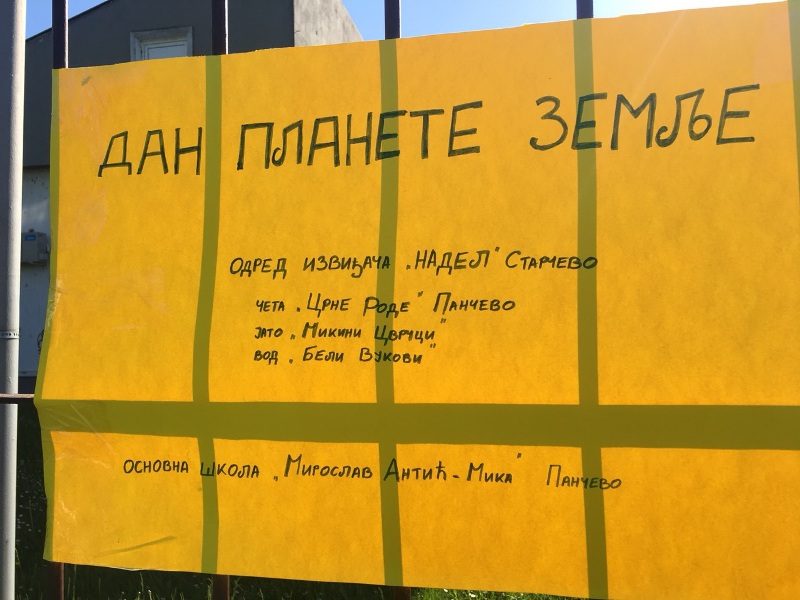 ДАН ПЛАНЕТЕ ЗЕМЉЕ
ОДРЕД ИЗВИЂАЧА „НАДЕЛ" СТАРЧЕВО
ЧЕТА „ЦРНЕ РОДЕ" ПАНЧЕВО
ЈАТО „МИКИНИ ЦВРЧЦИ"
ВОД „БЕЛИ ВУКОВИ"
ОСНОВНА ШКОЛА „МИРОСЛАВ АНТИЋ - МИКА" ПАНЧЕВО